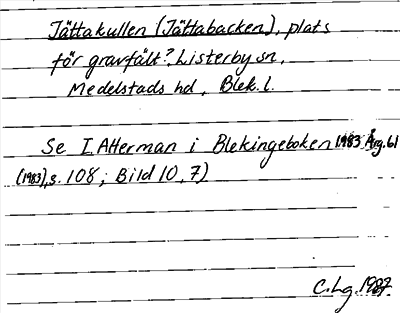 Jättakullen (Jättabacken), plats
för gravfält?, Listerby sn,
Medelstads hd, Blek. l.
Se I. Atterman i Blekingeboken 1983 Årg. 61
(1983), s. 108; Bild 10, 7)
C. Lg.